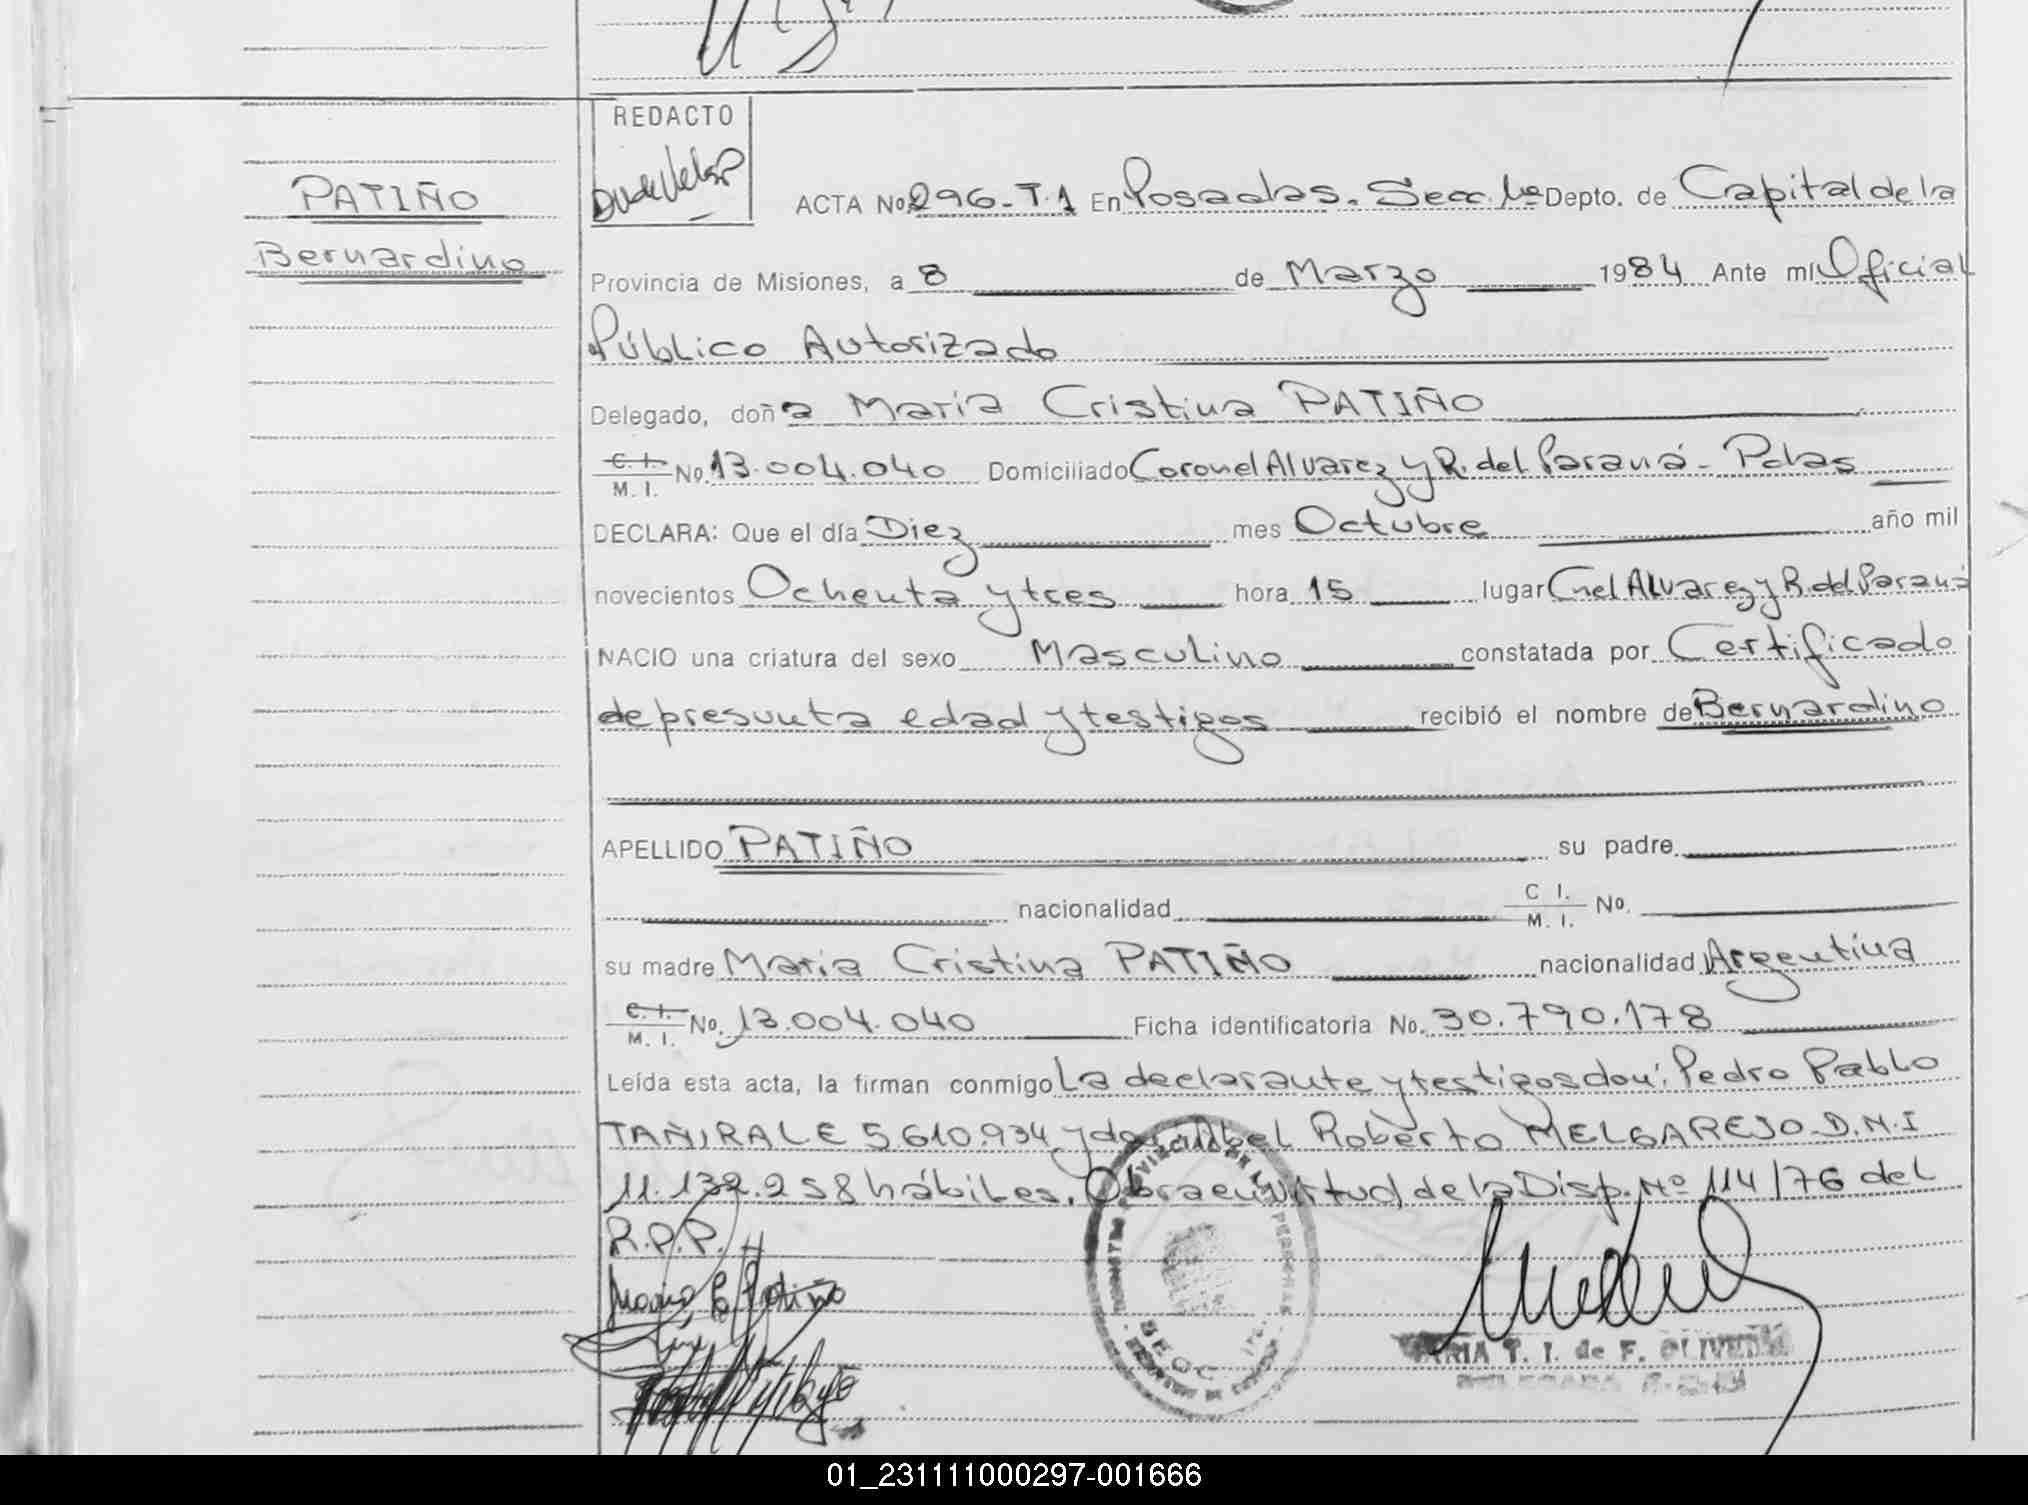 REDACTO
PATIÑO
Bernardino
ACTA No. 296-T.1 En Posadas. Secc. 1ª Depto. de Capital de la
Provincia de Misiones, a 8 de Marzo 1984 Ante mí Oficial
Público Autorizado
Delegado, doña Maria Cristina PATIÑO
C. I. / M. I. No. 13.004.040 Domiciliado Coronel Alvarez y R. del Paraná - Pdas
DECLARA: Que el día Diez mes Octubre año mil
novecientos Ochenta y tres hora 15 lugar Cnel Alvarez y R. del Paraná
NACIO una criatura del sexo Masculino constatada por Certificado
de presunta edad y testigos recibió el nombre de Bernardino
APELLIDO PATIÑO su padre
nacionalidad C I. / M. I. No.
su madre Maria Cristina PATIÑO nacionalidad Argentina
C. I. / M. I. No. 13.004.040 Ficha identificatoria No. 30.790.178
Leída esta acta, la firman conmigo La declarante y testigos don: Pedro Pablo
TAÑIRA L E 5.610.934 y don Abel Roberto MELGAREJO D.N.I
11.132.258 hábiles. Obra en virtud de la Disp. Nº 114/76 del
R.P.P.
Maria C Patiño
MARIA T. I. de F. OLIVERA
01_231111000297-001666